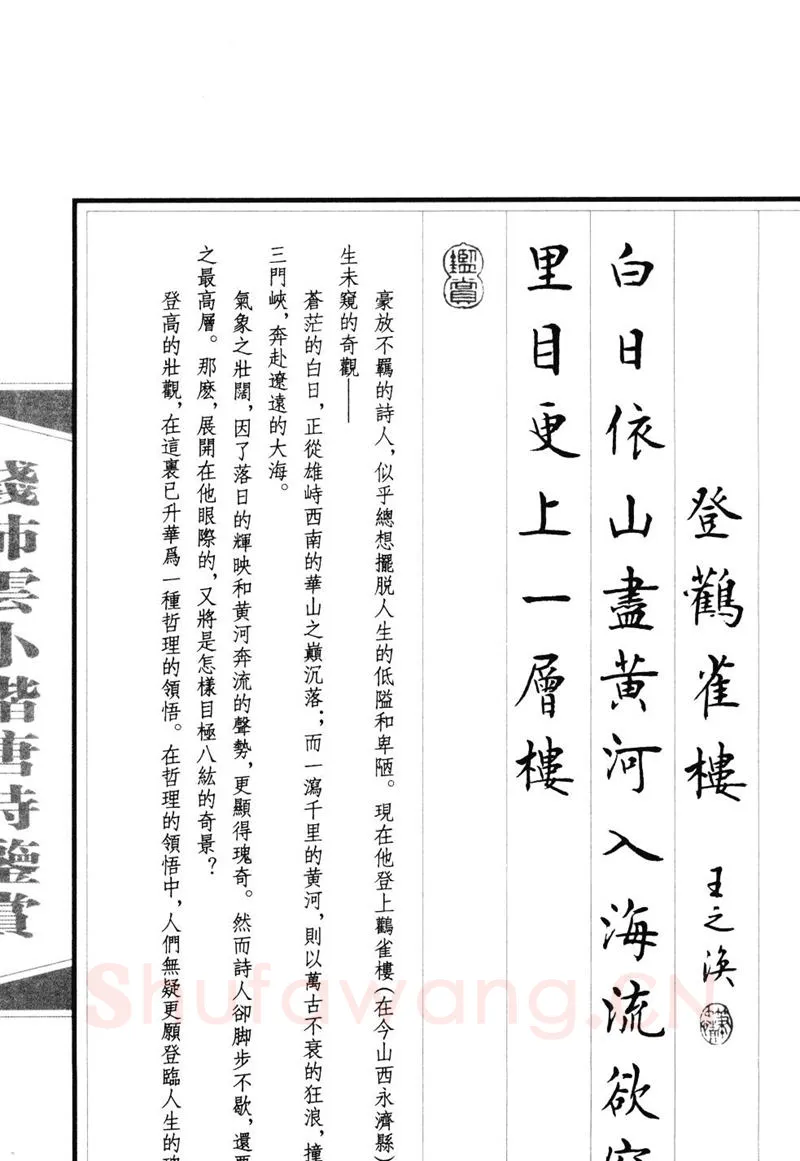 登鸛雀樓 王之渙
白日依山盡黄河入海流欲
里目更上一層樓
鑑賞
豪放不羈的詩人，似乎總想擺脱人生的低隘和卑陋。現在他登上鸛雀樓（在今山西永濟縣）
生未窺的奇觀——
蒼茫的白日，正從雄峙西南的華山之巔沉落；而一瀉千里的黄河，則以萬古不衰的狂浪，撞
三門峽，奔赴遼遠的大海。
氣象之壯闊，因了落日的輝映和黄河奔流的聲勢，更顯得瑰奇。然而詩人卻脚步不歇，還要
之最高層。那麽，展開在他眼際的，又將是怎樣目極八紘的奇景？
登高的壯觀，在這裏已升華爲一種哲理的領悟。在哲理的領悟中，人們無疑更願登臨人生的
錢沛雲小楷唐詩鑒賞
Shufawang.CN